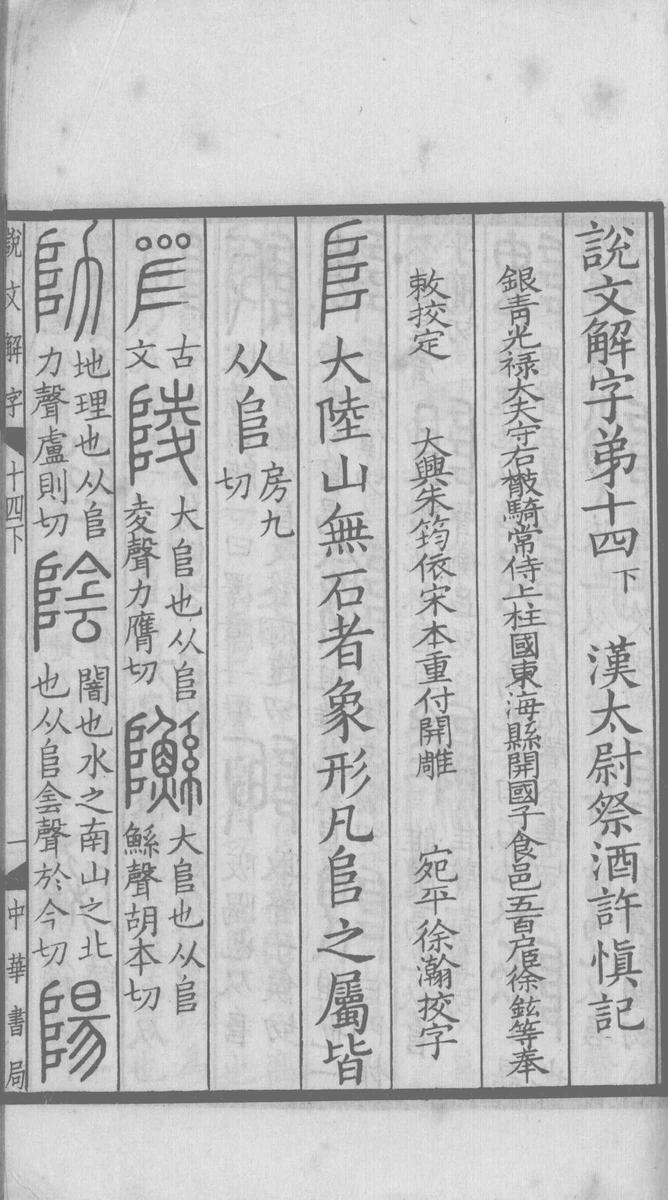 說文解字弟十四下 漢太尉祭酒許慎記
銀青光禄大夫守右散騎常侍上柱國東海縣開國子食邑五百戶臣徐鉉等奉
敕挍定 大興朱筠依宋本重付開雕 宛平徐瀚挍字
𨸏 大陸山無石者象形凡𨸏之屬皆
从𨸏 房九切
𨺅 古文 陵 大𨸏也从𨸏夌聲力膺切 𨽌 大𨸏也从𨸏鯀聲胡本切
阞 地理也从𨸏力聲盧則切 陰 闇也水之南山之北也从𨸏侌聲於今切 陽
說文解字 十四下 一 中華書局